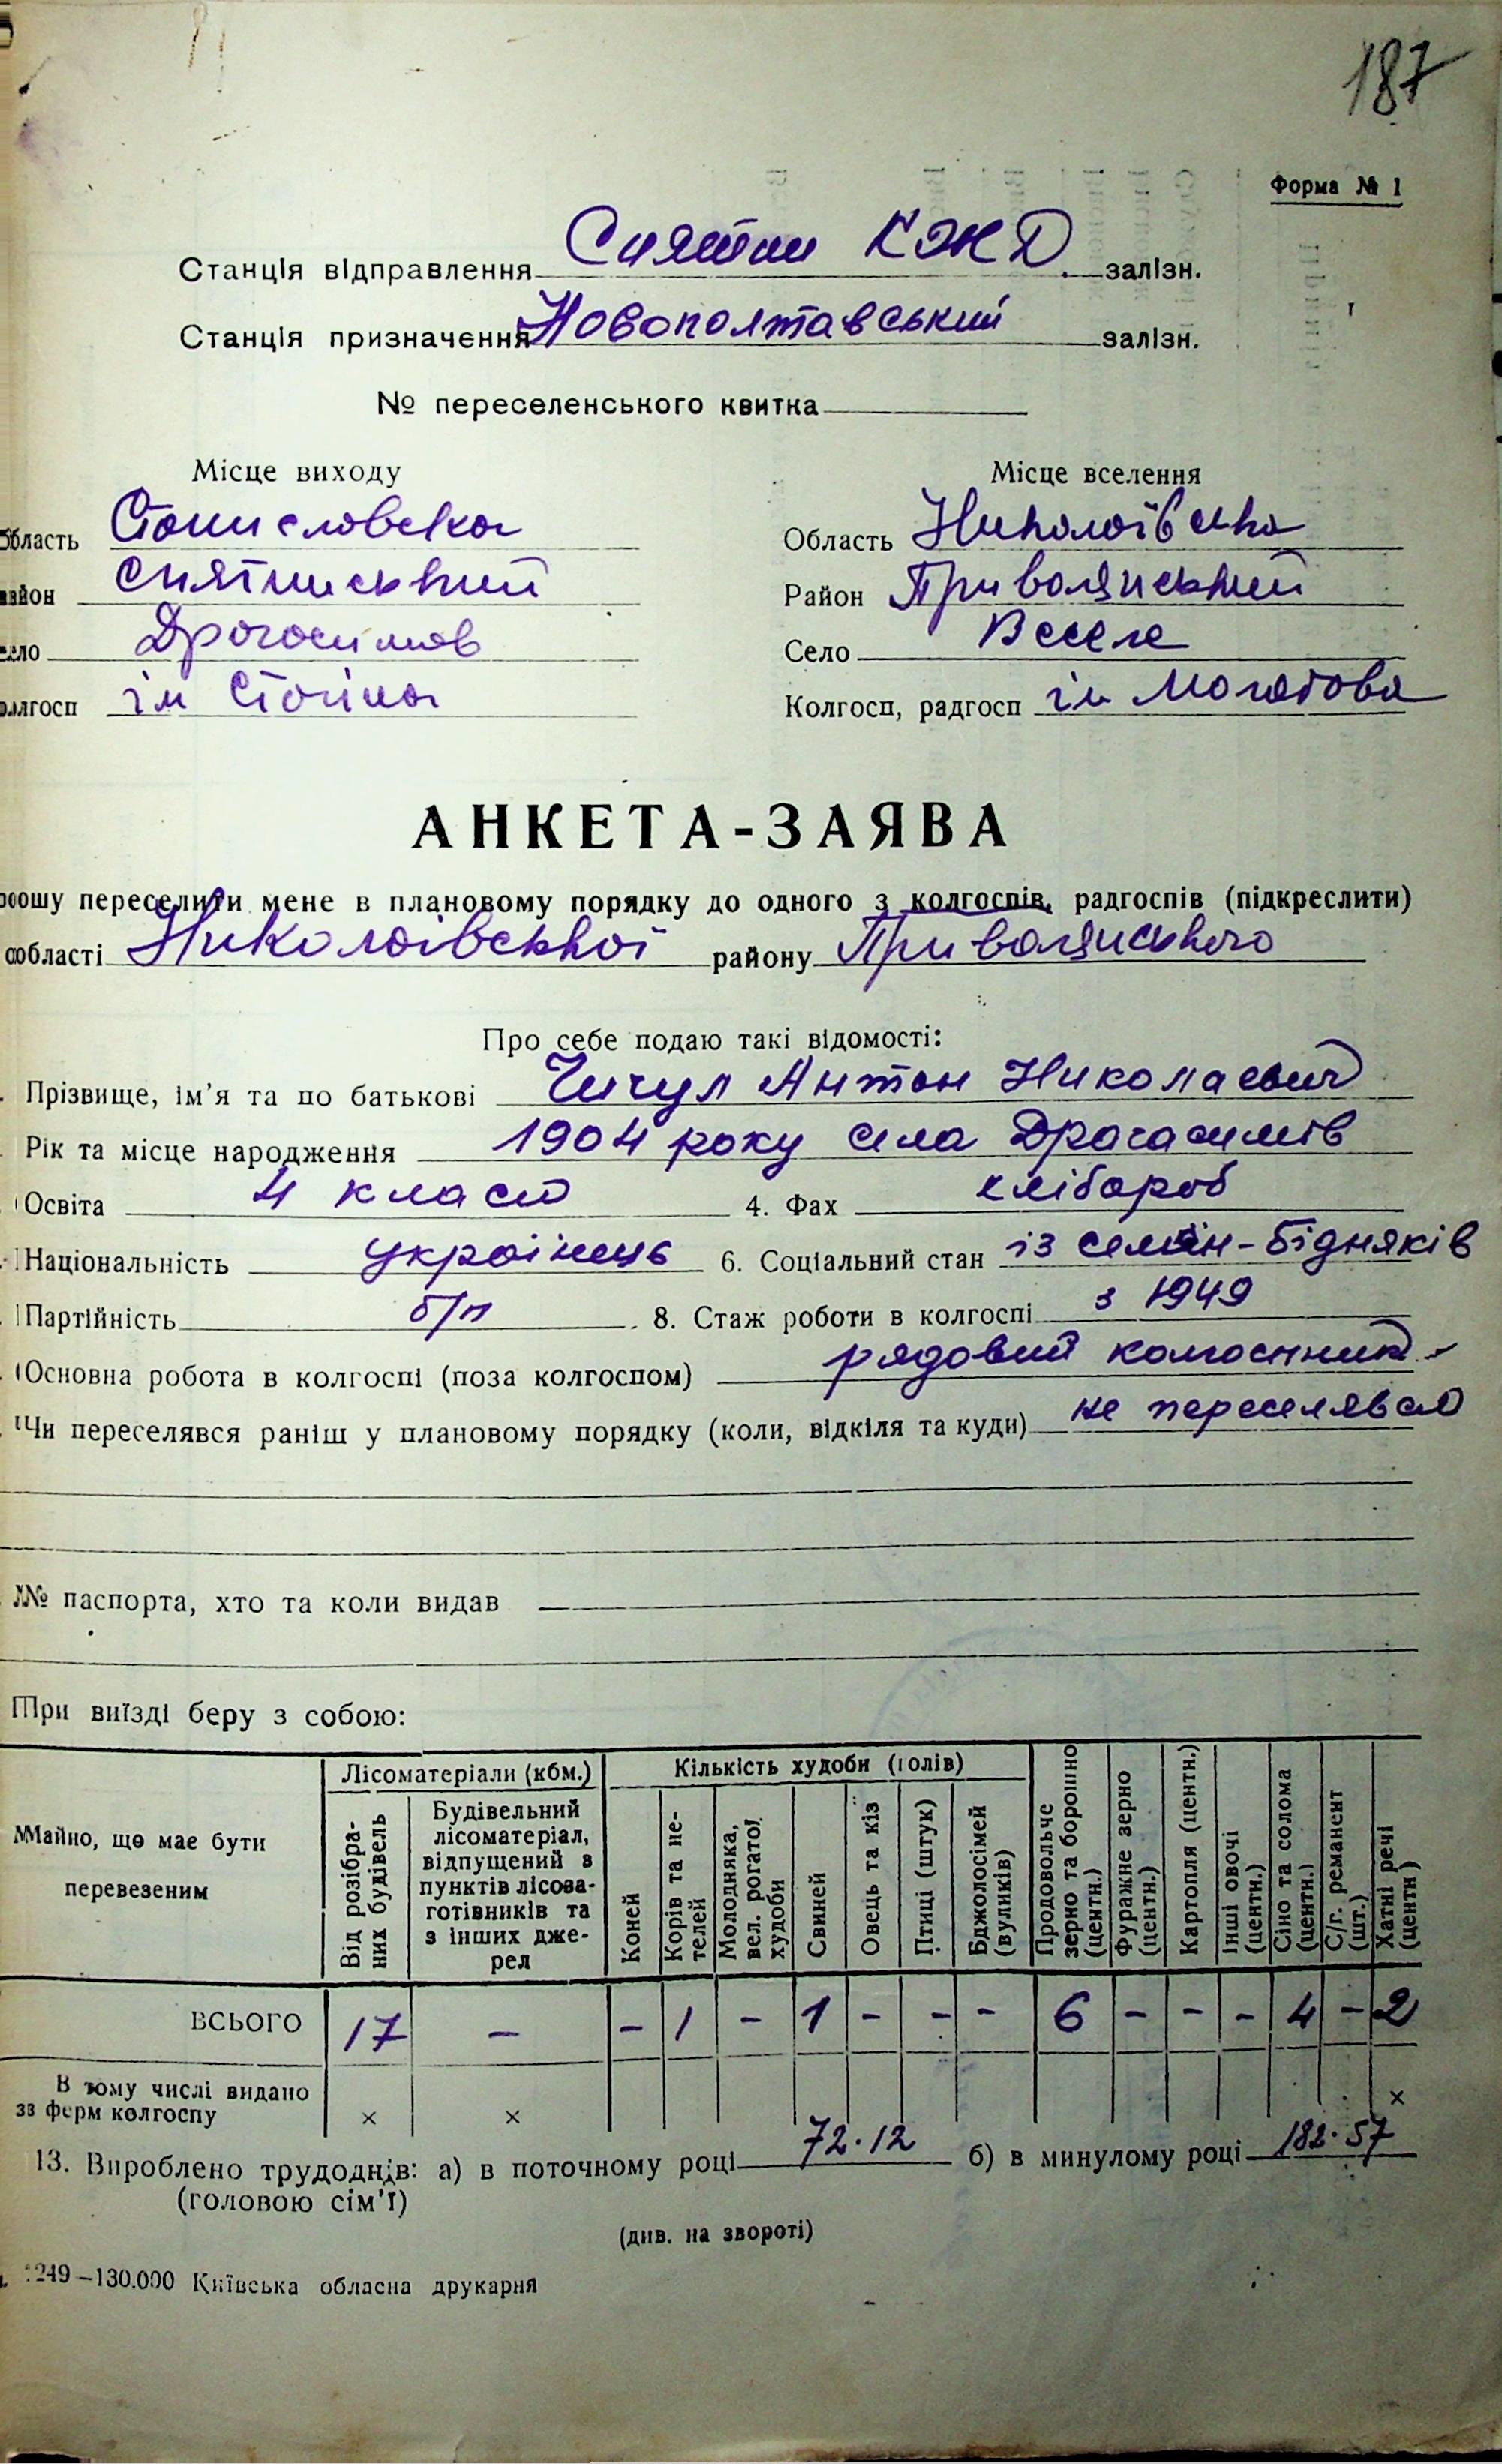 187
Форма № 1
Станція відправлення Снятин КЖД залізн.
Станція призначення Новополтавський залізн.
№ переселенського квитка
Місце виходу Місце вселення
область Станиславська Область Николаївська
район Снятинський Район Привольянський
село Драгасимов Село Веселе
колгосп ім Сталіна Колгосп, радгосп ім
АНКЕТА-ЗАЯВА
рошу переселити мене в плановому порядку до одного з колгоспів, радгоспів (підкреслити)
області Николаївської району Привольянського
Про себе подаю такі відомості:
Прізвище, ім'я та по батькові Чичул Антон Николаевич
Рік та місце народження 1904 року села Драгасимів
Освіта 4 класи 4. Фах хлібороб
Національність українець 6. Соціальний стан із семїн-бідняків
Партійність б/п 8. Стаж роботи в колгоспі з 1949
Основна робота в колгоспі (поза колгоспом) рядовий колгоспник
Чи переселявся раніш у плановому порядку (коли, відкіля та куди) не переселявся
№ паспорта, хто та коли видав
При виїзді беру з собою:
Майно, що має бути перевезеним
Лісоматеріали (кбм.)
Від розібраних будівель
Будівельний лісоматеріал, відпущений з пунктів лісозаготівників та з інших джерел
Кількість худоби (голів)
Коней
Корів та нетелей
Молодняка, вел. рогатої худоби
Свиней
Овець та кіз
Птиці (штук)
Бджолосімей (вуликів)
Продовольче зерно та борошно (центн.)
Фуражне зерно (центн.)
Картопля (центн.)
Інші овочі (центн.)
Сіно та солома (центн.)
С/г. реманент (шт.)
Хатні речі (центн)
ВСЬОГО 17 – – 1 – 1 – – – 6 – – – 4 – 2
В тому числі видано
з ферм колгоспу × × ×
13. Вироблено трудоднів: а) в поточному році 72.12 б) в минулому році 182.57
(головою сім'ї)
(див. на звороті)
249–130.000 Київська обласна друкарня